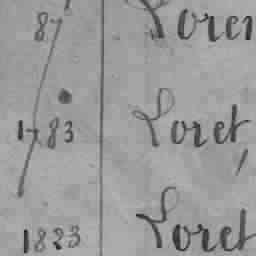 87 Loren
1783 Loret
1823 Loret